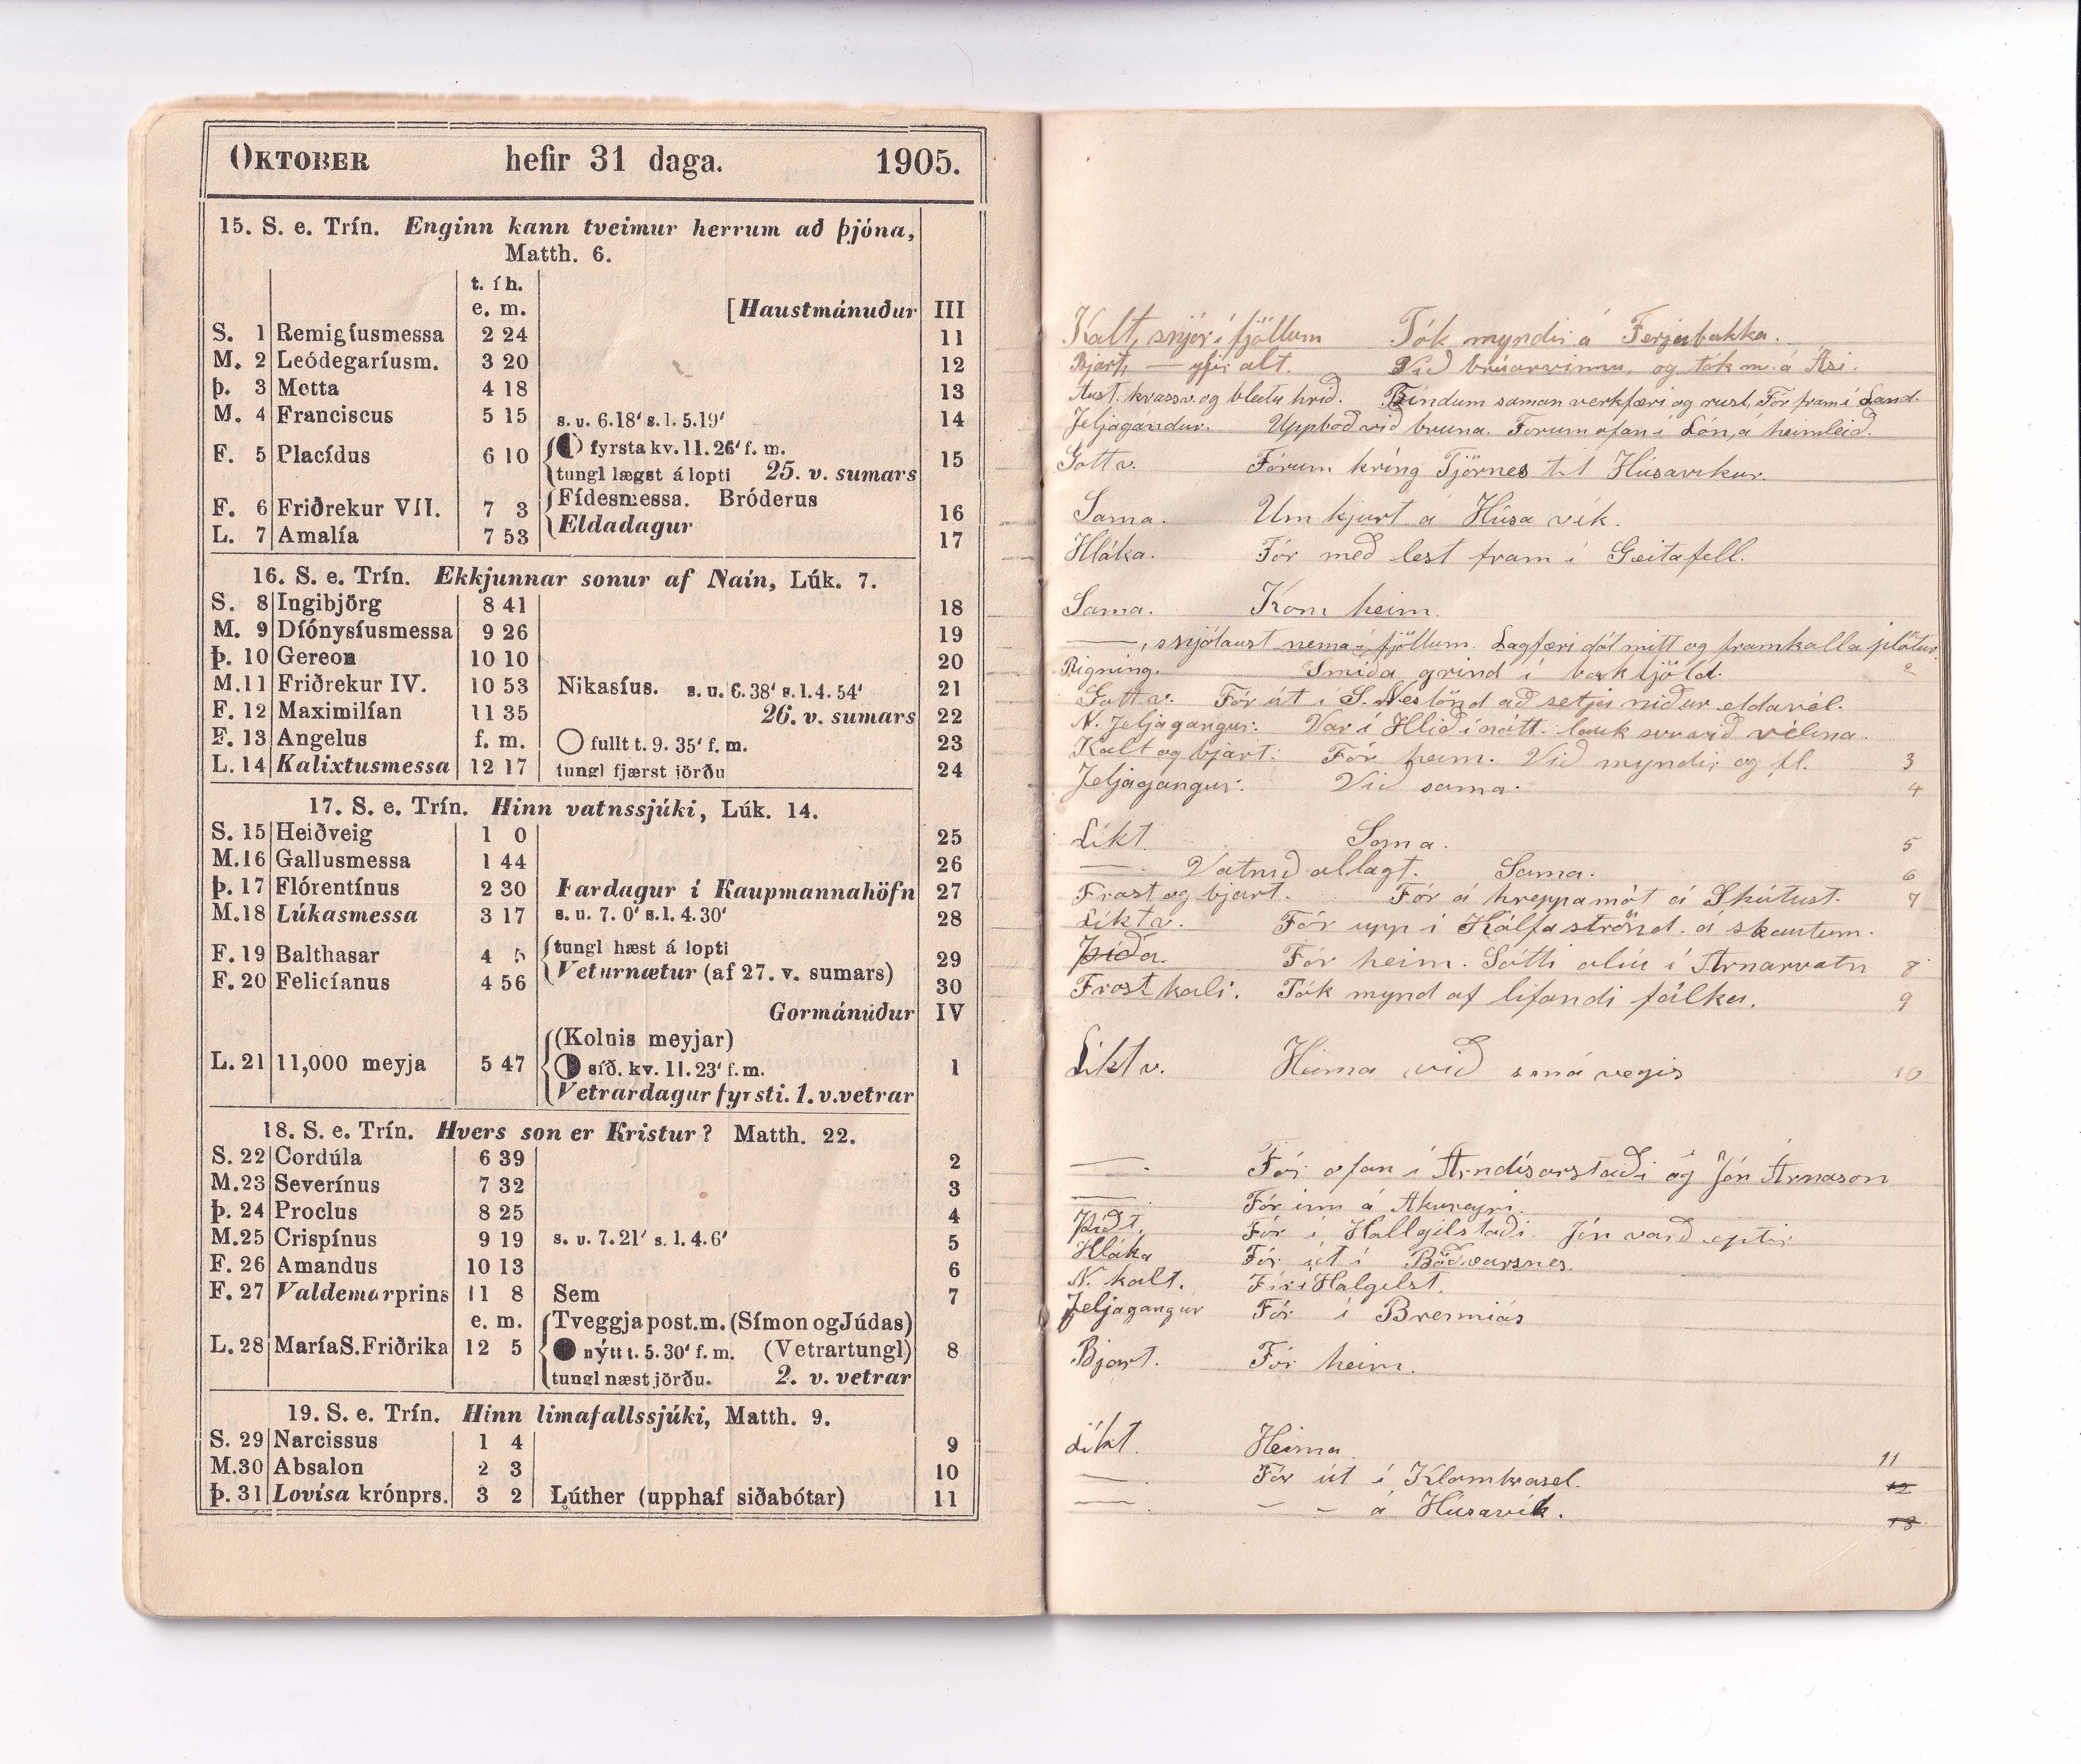 OKTOBER hefir 31 daga. 1905.
15. S. e. Trín. Enginn kann tveimur herrum að þjóna,
Matth. 6.
t. í h.
e. m. [Haustmánuður III
S. 1 Remigíusmessa 2 24 11
M. 2 Leódegaríusm. 3 20 12
Þ. 3 Metta 4 18 13
M. 4 Franciscus 5 15 s. u. 6.18' s. l. 5.19' 14
F. 5 Placídus 6 10 fyrsta kv. 11. 26' f. m. 15
tungl lægst á lopti 25. v. sumars
F. 6 Friðrekur VII. 7 3 Fídesmessa. Bróderus 16
Eldadagur
L. 7 Amalía 7 53 17
16. S. e. Trín. Ekkjunnar sonur af Naín, Lúk. 7.
S. 8 Ingibjörg 8 41 18
M. 9 Díónysíusmessa 9 26 19
Þ. 10 Gereon 10 10 20
M. 11 Friðrekur IV. 10 53 Nikasíus. s. u. 6. 38' s. l. 4. 54' 21
F. 12 Maximilían 11 35 26. v. sumars 22
F. 13 Angelus f. m. fullt t. 9. 35' f. m. 23
L. 14 Kalixtusmessa 12 17 tungl fjærst jörðu 24
17. S. e. Trín. Hinn vatnssjúki, Lúk. 14.
S. 15 Heiðveig 1 0 25
M. 16 Gallusmessa 1 44 26
Þ. 17 Flórentínus 2 30 Fardagur í Kaupmannahöfn 27
M. 18 Lúkasmessa 3 17 s. u. 7. 0' s. l. 4. 30' 28
F. 19 Balthasar 4 5 tungl hæst á lopti 29
Veturnætur (af 27. v. sumars)
F. 20 Felicíanus 4 56 30
Gormánuður IV
(Kolnis meyjar)
L. 21 11,000 meyja 5 47 síð. kv. 11. 23' f. m. 1
Vetrardagur fyrsti. 1. v. vetrar
18. S. e. Trín. Hvers son er Kristur? Matth. 22.
S. 22 Cordúla 6 39 2
M. 23 Severínus 7 32 3
Þ. 24 Proclus 8 25 4
M. 25 Crispínus 9 19 s. u. 7. 21' s. l. 4. 6' 5
F. 26 Amandus 10 13 6
F. 27 Valdemar prins 11 8 Sem 7
e. m. Tveggja post.m. (Símon og Júdas)
L. 28 María S. Friðrika 12 5 nýtt t. 5. 30' f. m. (Vetrartungl) 8
tungl næst jörðu. 2. v. vetrar
19. S. e. Trín. Hinn limafallssjúki, Matth. 9.
S. 29 Narcissus 1 4 9
M. 30 Absalon 2 3 10
Þ. 31 Lovísa krónprs. 3 2 Lúther (upphaf siðabótar) 11
Kalt, snjór í fjöllum Tók myndir á Ferjubakka.
Bjart, — yfir alt. Við brúarvinnu, og tók m. á Ási.
Aust. kvassv. og bleytu hríð. Tíndum saman verkfæri og rusl. Fór fram í Land.
Jeljagangur. Uppboð við bruna. Forum ofan í Lón, á heimleið.
Gott v. Fórum kring Tjörnes til Húsavíkur.
Sama. Um kjurt á Húsavík.
Hláka. Fór með lest fram í Geitafell.
Sama. Kom heim.
—, snjólaust nema í fjöllum. Lagfæri dót mitt og framkalla plötur.
Rigning. Smíða grind í baktjöld. 2
Gott v. Fór út í S. Neslönd að setja niður eldavél.
N. Jeljagangur. Var í Hlíð í nótt. lauk svo við vélina.
Kalt og bjart. Fór heim. Við myndir og fl. 3
Jeljagangur. Við sama. 4
Líkt Sama. 5
— Vatnið allagt. Sama. 6
Frost og bjart. Fór á hreppamót á Skútust. 7
Líkt v. Fór upp í Kálfaströnd á skautum.
Þíða. Fór heim. Sótti olíu í Arnarvatn 8
Frostkali. Tók mynd af lifandi fálka. 9
Líkt v. Heima við smávegis 10
—. Fór ofan í Arndísarstaði og Jón Árnason
—. Fór inn á Akureyri.
Þítt. Fór í Hallgilstaði. Jón varð eptir
Hláka Fór út í Böðvarsnes.
N. kalt. Fór í Halgilst.
Jeljagangur Fór í
Bjart. Fór heim.
Líkt. Heima 11
—. Fór út í Klambrasel. 12
—. - - á Húsavík. 13